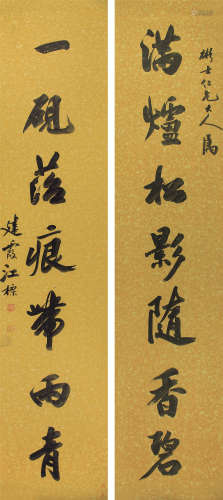 術士仁兄大人屬
滿爐松影隨香碧
一硯菭痕帶雨青
建霞江標